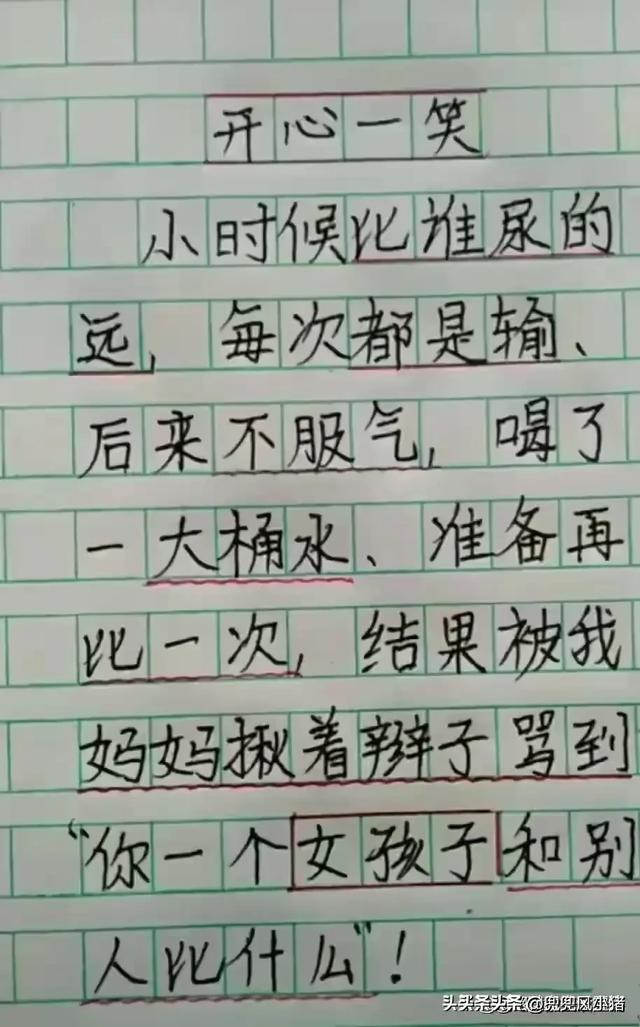 开心一笑
小时候比谁尿的
远，每次都是输、
后来不服气，喝了
一大桶水、准备再
比一次，结果被我
妈妈揪着辫子骂到
“你一个女孩子和别
人比什么”！
头条 @兜兜风娃猪